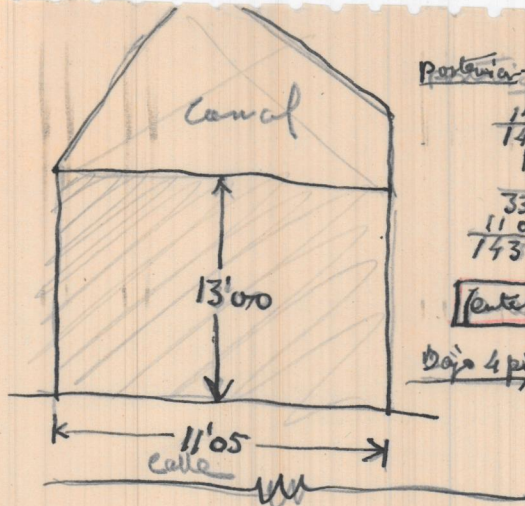 Corral
13'00
11'05
Calle
Posterior
14
33
11 0
143
Bajo 4 pi